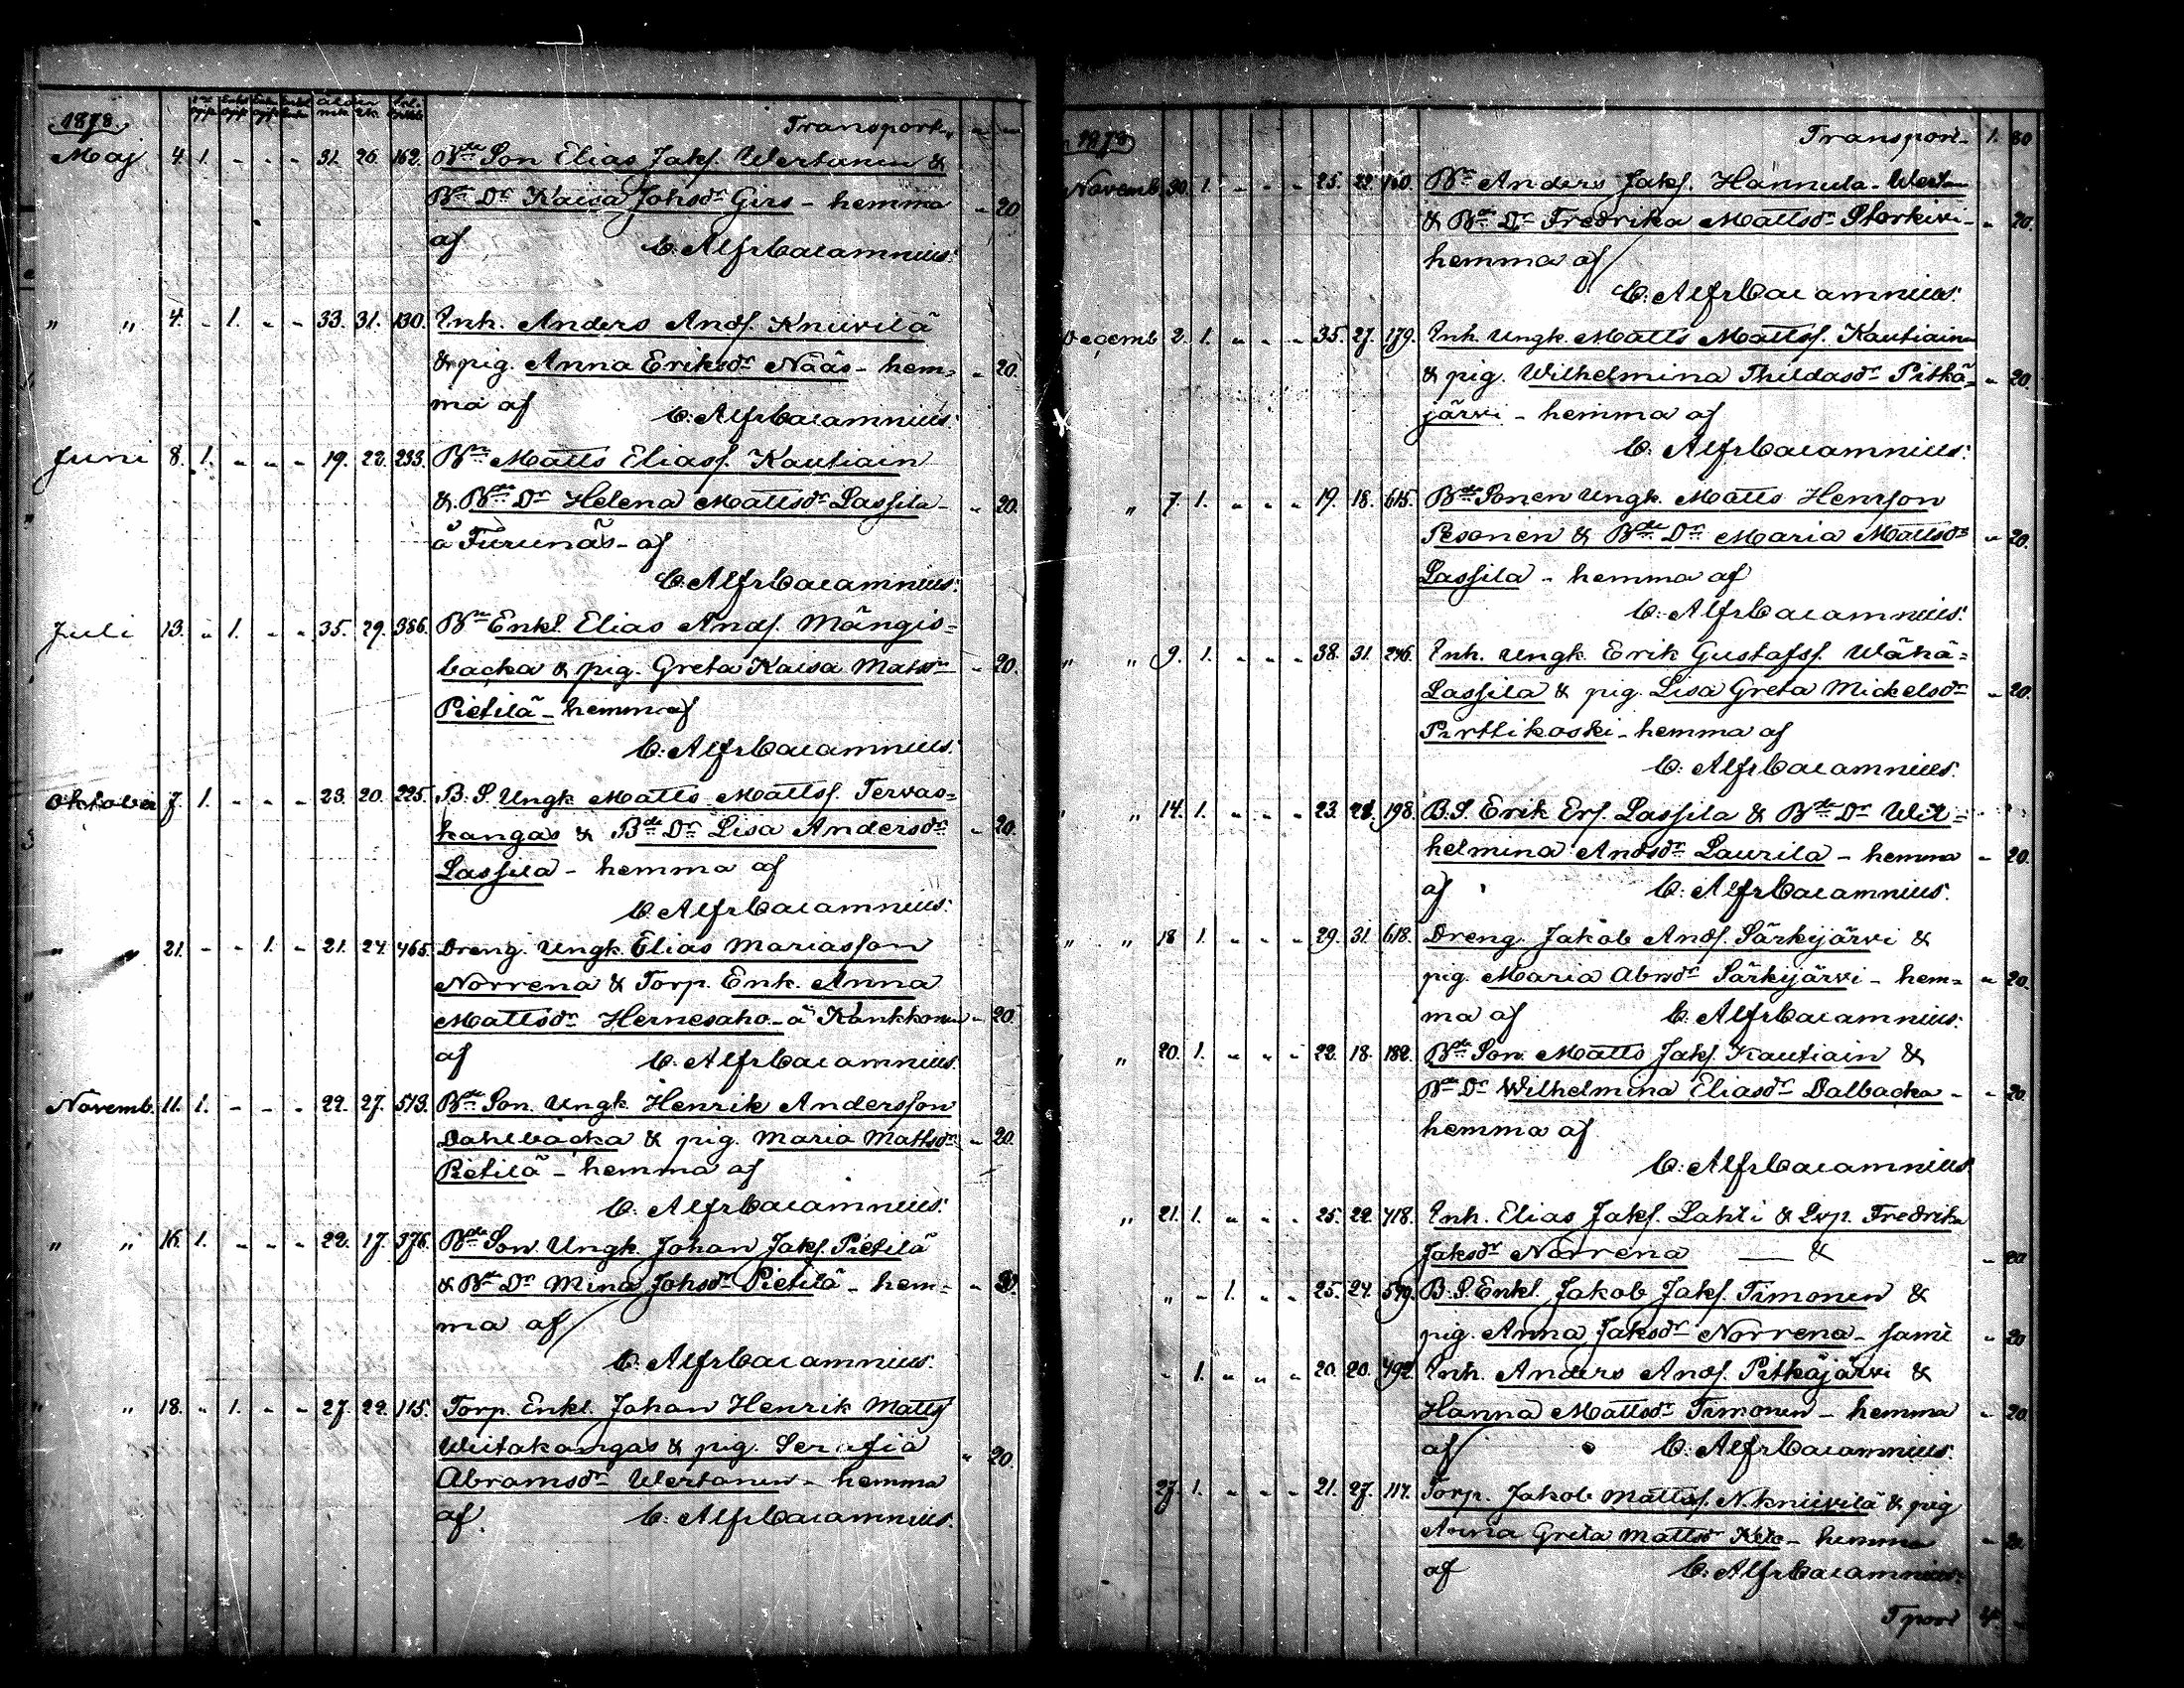 1878. Transport.
Maj 4. 1. - - - 31. 26. 162. Bde Son Elias Jakſ. Wertanen &
Bde Dr Kaisa Johsdr Girs - hemma - 20
af C. Alfr Cacamnius.
" " 4. - 1. - - 33. 31. 130. Inh. Anders Andſ. Kniivilä
& pig. Anna Eriksdr Nääs - hem= - 20.
ma af C. Alfr Cacamnius.
Juni 8. 1. - - - 19. 22. 233. Bdn Matts Eliasſ. Kautiain
& Bde Dr Helena Mattsdr Lasſila - - 20.
å Furunäs - af
C. Alfr Cacamnius.
Juli 13. - 1. - - 35. 29. 386. Bdn Enkl. Elias Andſ. Mångis=
backa & pig. Greta Kaisa Matsdr - 20.
Pietilä - hemma af
C. Alfr Cacamnius.
Oktober 7. 1. - - - 23. 20. 225. B. S. Ungk. Matts Mattsſ. Tervas=
kangas & Bde Dr Lisa Andersdr - 20.
Lasſila - hemma af
C. Alfr Cacamnius.
" " 21. - - 1. - 21. 24. 465. Dreng. Ungk. Elias Mariasſon
Norrena & Torp. Enk. Anna
Mattsdr Hernesaho - å Kankkonen - 20.
af C. Alfr Cacamnius.
Novemb. 11. 1. - - - 22. 27. 573. Bde Son. Ungk. Henrik Andersſon
Dahlbacka & pig. Maria Mattsdr - 20.
Pietilä - hemma af
C. Alfr Cacamnius.
" " 16. 1. - - - 22. 17. 376. Bde Son Ungk. Johan Jakſ. Pietilä
& Bde Dr Mina Johsdr Pietilä - hem= - 20.
ma af
C. Alfr Cacamnius.
" " 18. - 1. - - 27. 22. 115. Torp. Enkl. Johan Henrik Mattsſ
Wiitakangas & pig. Serafia - 20.
Abramsdr Wertanen - hemma
af. C. Alfr Cacamnius.
1878 Transport - 1. 80
Novemb. 30. 1. - - - 25. 22. 160. Bdn Anders Jakſ. Hannula - Wertan
& Bde Dr Fredrika Mattsdr Storkivi - - 20.
hemma af
C. Alfr Cacamnius.
Decemb 2. 1. - - - 35. 27. 179. Inh. Ungk. Matts Mattsſ. Kautiainen
& pig. Wilhelmina Thildasdr Pitkä= - 20.
järvi - hemma af
C. Alfr Cacamnius.
" 7. 1. - - - 19. 18. 615. Bde Sonen Ungk. Matts Henrſon
Pesonen & Bde Dr Maria Mattsdr - 20.
Lasſila - hemma af
C. Alfr Cacamnius.
" " 9. 1. - - - 38. 31. 246. Inh. Ungk. Erik Gustafsſ. Wähä=
Lasſila & pig. Lisa Greta Mickelsdr - 20.
Pirttikoski - hemma af
C. Alfr Cacamnius.
" " 14. 1. - - - 23. 21. 198. B. S. Erik Erſ. Lasſila & Bde Dr Wil=
helmina Andsdr Laurila - hemma - 20.
af C. Alfr Cacamnius.
" " 18 1. - - - 29. 31. 618. Dreng. Jakob Andſ. Särkijärvi &
pig. Maria Abrsdr Särkijärvi - hem= - 20.
ma af C. Alfr Cacamnius.
" 20. 1. - - - 22. 18. 182. Bde Son. Matts Jakſ. Kautiain &
Bde Dr Wilhelmina Eliasdr Dalbacka - - 20
hemma af
C. Alfr Cacamnius
" 21. 1. - - - 25. 22. 418. Inh. Elias Jakſ. Lahti & Fredrika
Jaksdr Norrena — & - 20
" - 1. - - 25. 24. 579. B. S. Enkl. Jakob Jakſ. Timonen &
pig. Anna Jaksdr Norrena - samt - 20
" 1. - - - 20. 20. 492. Inh. Anders Andſ. Pitkäjärvi &
Hanna Mattsdr Timonen - hemma - 20.
af C. Alfr Cacamnius.
27. 1. - - - 21. 27. 117. Torp. Jakob Mattsſ. N. Kniivilä & pig
Anna Greta Mattsdr - hemma - 20.
af C. Alfr Cacamnius.
Tport 4. -